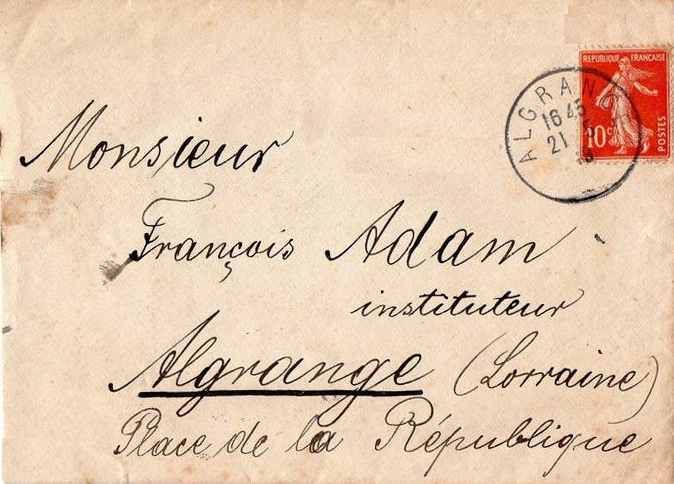 REPUBLIQUE FRANÇAISE
10c
POSTES
ALGRANG
16 45
21
Monsieur
François Adam
instituteur
Algrange (Lorraine)
Place de la République